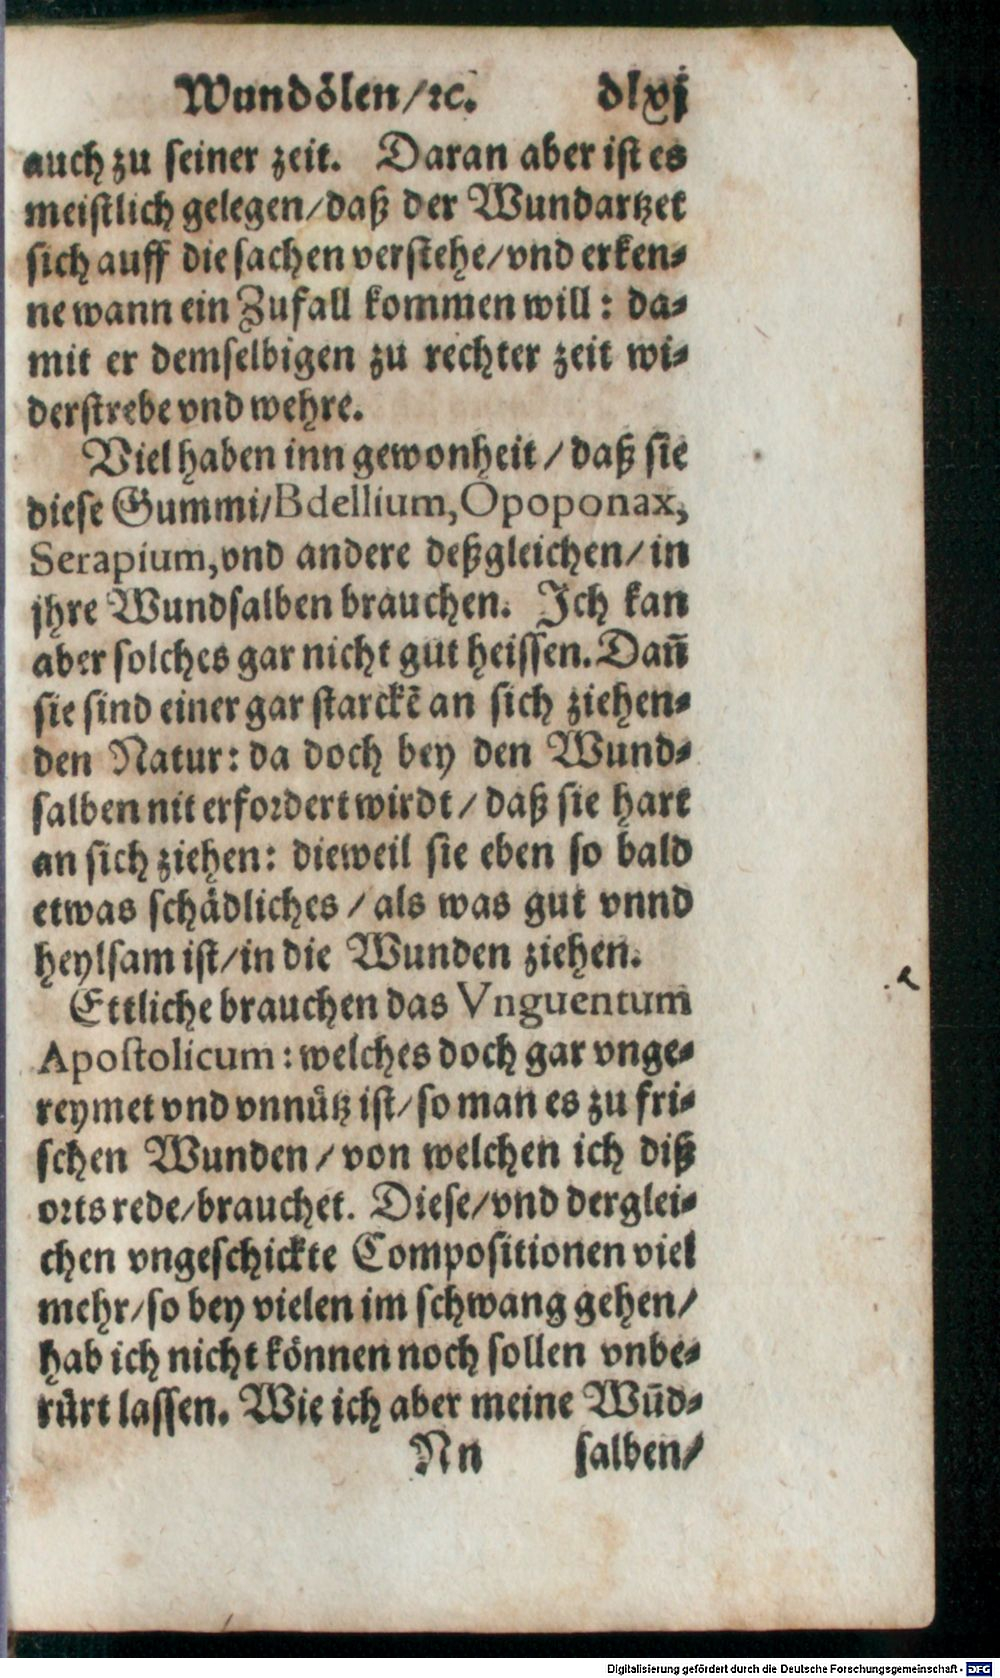 Wundölen/ꝛc. dlxj
auch zu seiner zeit. Daran aber ist es
meistlich gelegen/daß der Wundartzet
sich auff die sachen verstehe/vnd erken⸗
ne wann ein Zufall kommen will: da⸗
mit er demselbigen zu rechter zeit wi⸗
derstrebe vnd wehre.
Viel haben inn gewonheit/daß sie
diese Gummi/Bdellium, Opoponax,
Serapium, vnd andere deßgleichen/in
jhre Wundsalben brauchen. Ich kan
aber solches gar nicht gut heissen. Dañ
sie sind einer gar starckẽ an sich ziehen⸗
den Natur: da doch bey den Wund⸗
salben nit erfordert wirdt/daß sie hart
an sich ziehen: dieweil sie eben so bald
etwas schädliches/als was gut vnnd
heylsam ist/in die Wunden ziehen.
Ettliche brauchen das Vnguentum
Apostolicum: welches doch gar vnge⸗
reymet vnd vnnütz ist/so man es zu fri⸗
schen Wunden/von welchen ich diß
orts rede/brauchet. Diese/vnd derglei⸗
chen vngeschickte Compositionen viel
mehr/so bey vielen im schwang gehen/
hab ich nicht können noch sollen vnbe⸗
rürt lassen. Wie ich aber meine Wũd⸗
Nn salben/
Digitalisierung gefördert durch die Deutsche Forschungsgemeinschaft - DFG